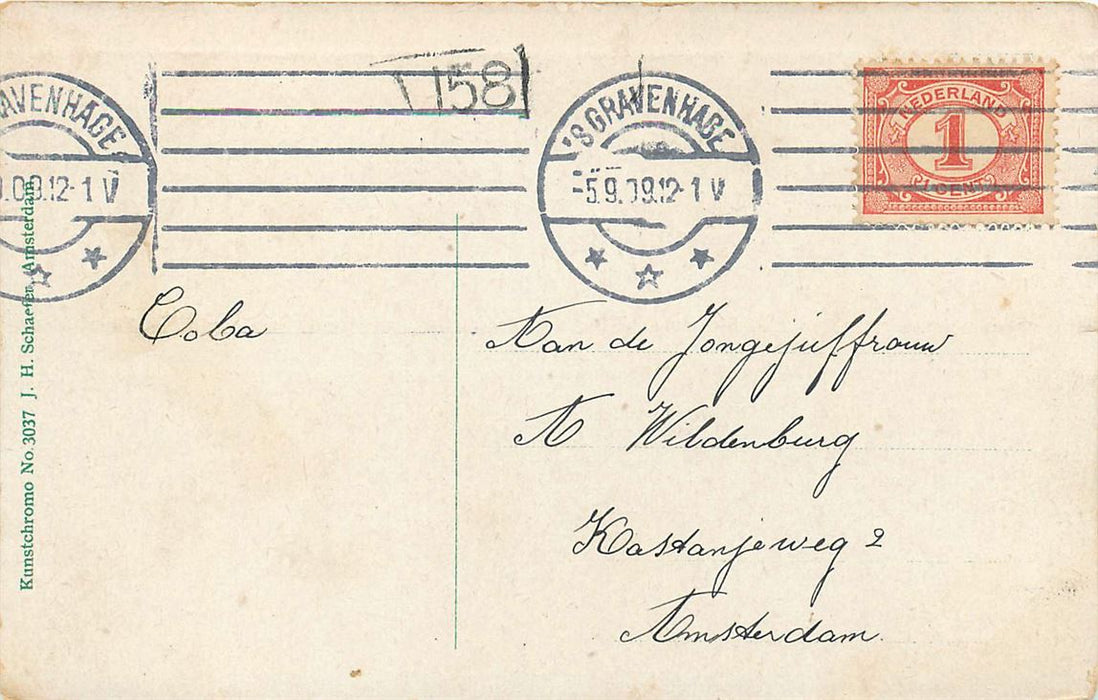 158
'S GRAVENHAGE
-5.9.09.12-1 V
NEDERLAND
1
1 CENT
AVENHAGE
.09.12-1 V
Coba
Aan de Jongejuffrouw
A Wildenburg
Kastanjeweg 2
Amsterdam
Kunstchromo No. 3037 J. H. Schaefer, Amsterdam.